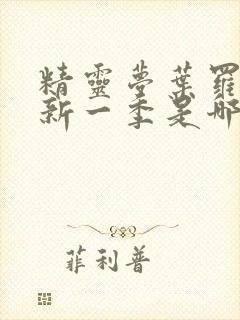 精靈夢葉羅
新一季是哪
菲利普